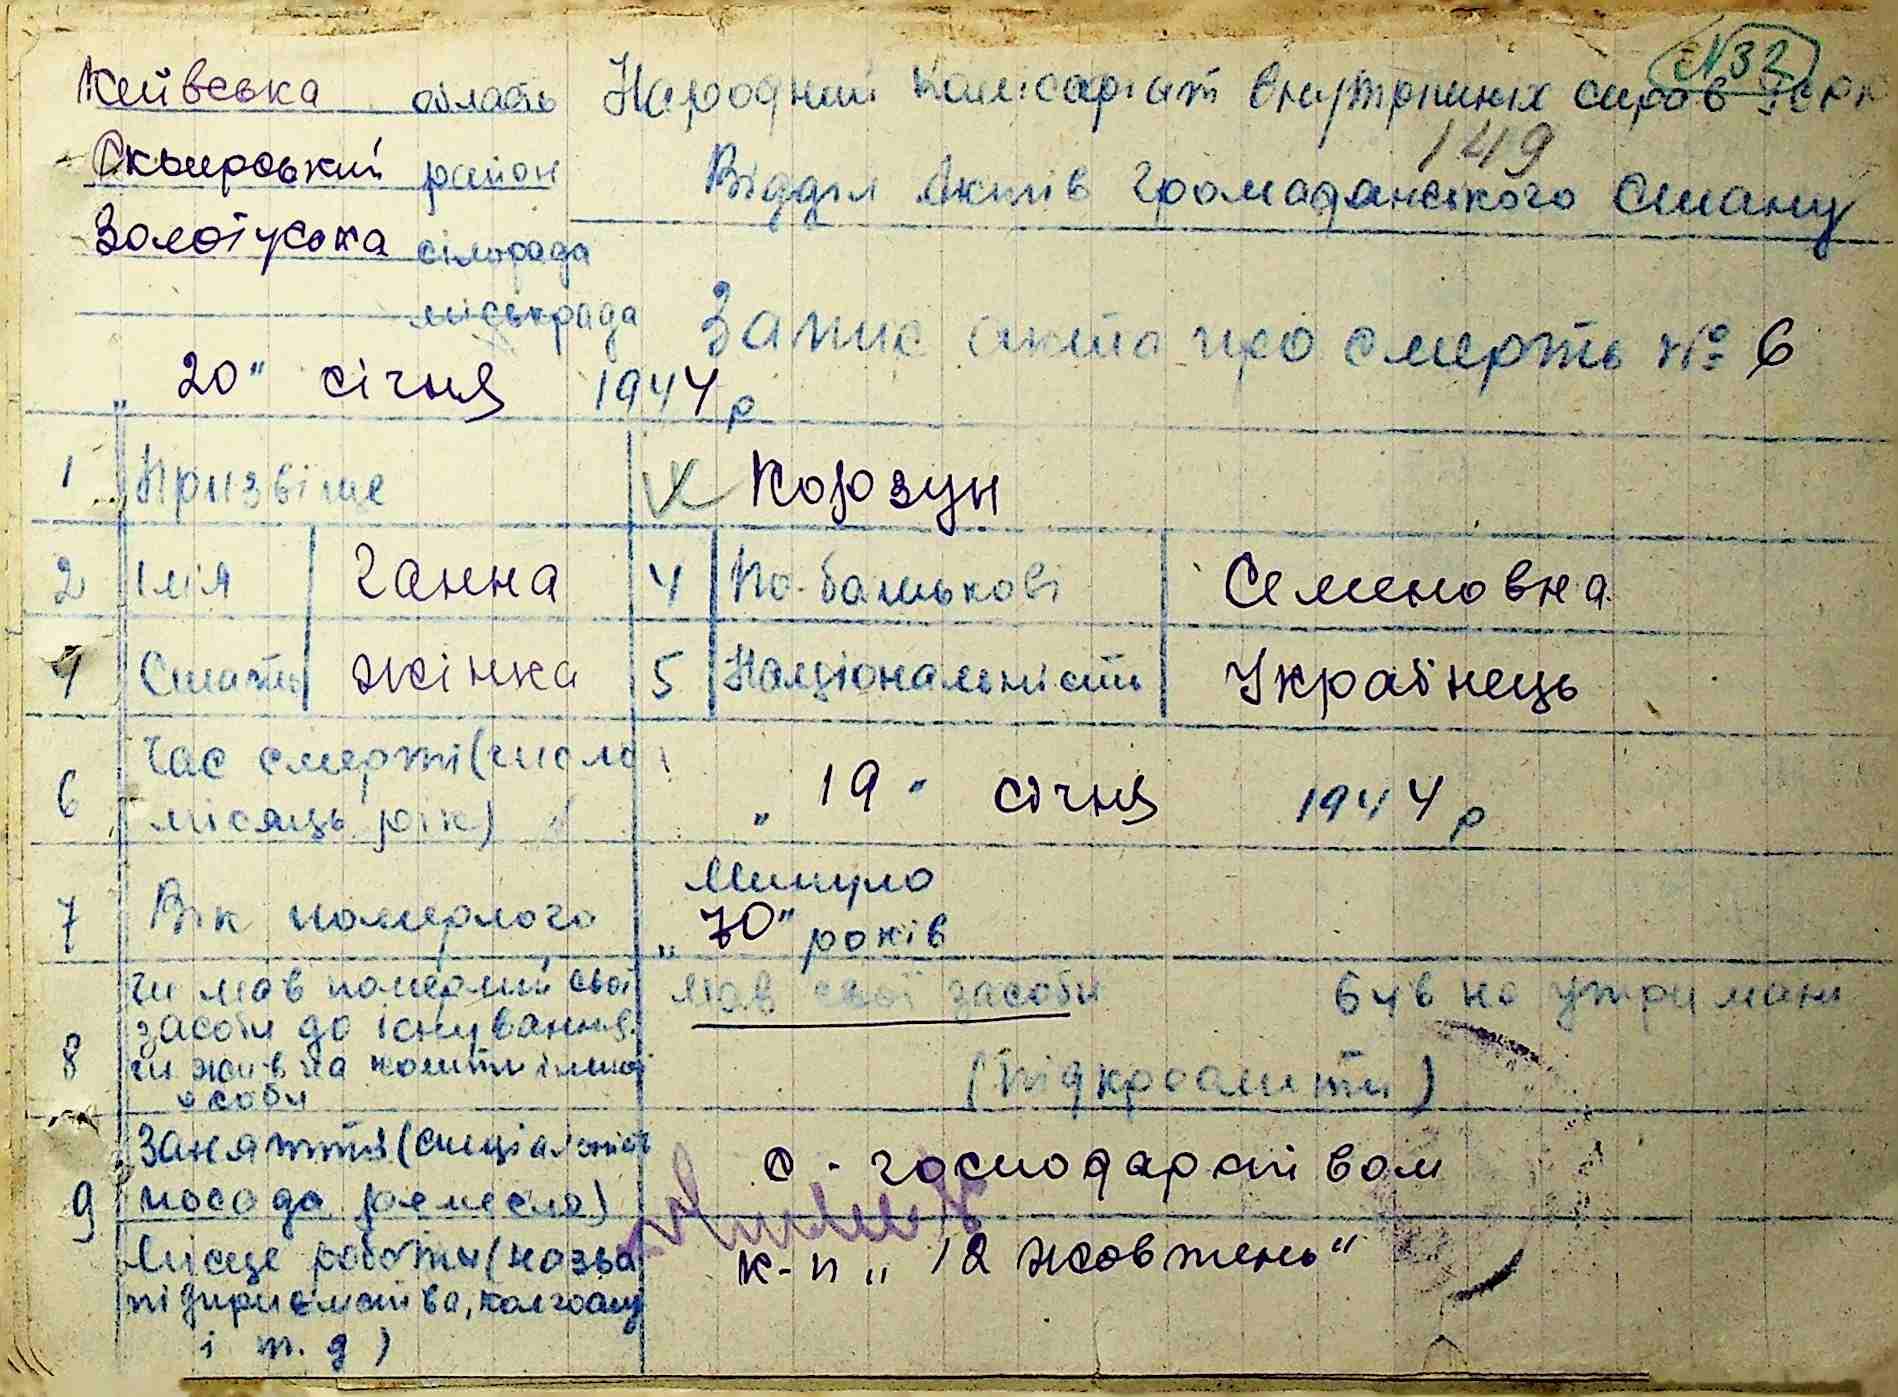 №32
Київська область Народний Комісаріат Внутрішніх справ УСРР
149
Сквирський район Відділ Актів Громадянського Стану
сільрада
міськрада
Запис акта про смерть № 6
„20" січня 1944 р
1 Призвіще Корзун
2 Імя Ганна 4 По-батькові Семеновна
4 Стать жінка 5 Національність Українець
6 Час смерті (число місяць рік) „19" січня 1944 р
7 Вік померлого Минуло
„70" років
8 Чи мав померлий свої засоби до існування мав свої засоби був на утримані
чи жив на кошти іншої особи (підкреслити)
9 Заняття (спеціальність с-господарством
посада ремесло)
Місце роботи (назва к-п „12 жовтень"
підприємства, колгоспу
і т. д)